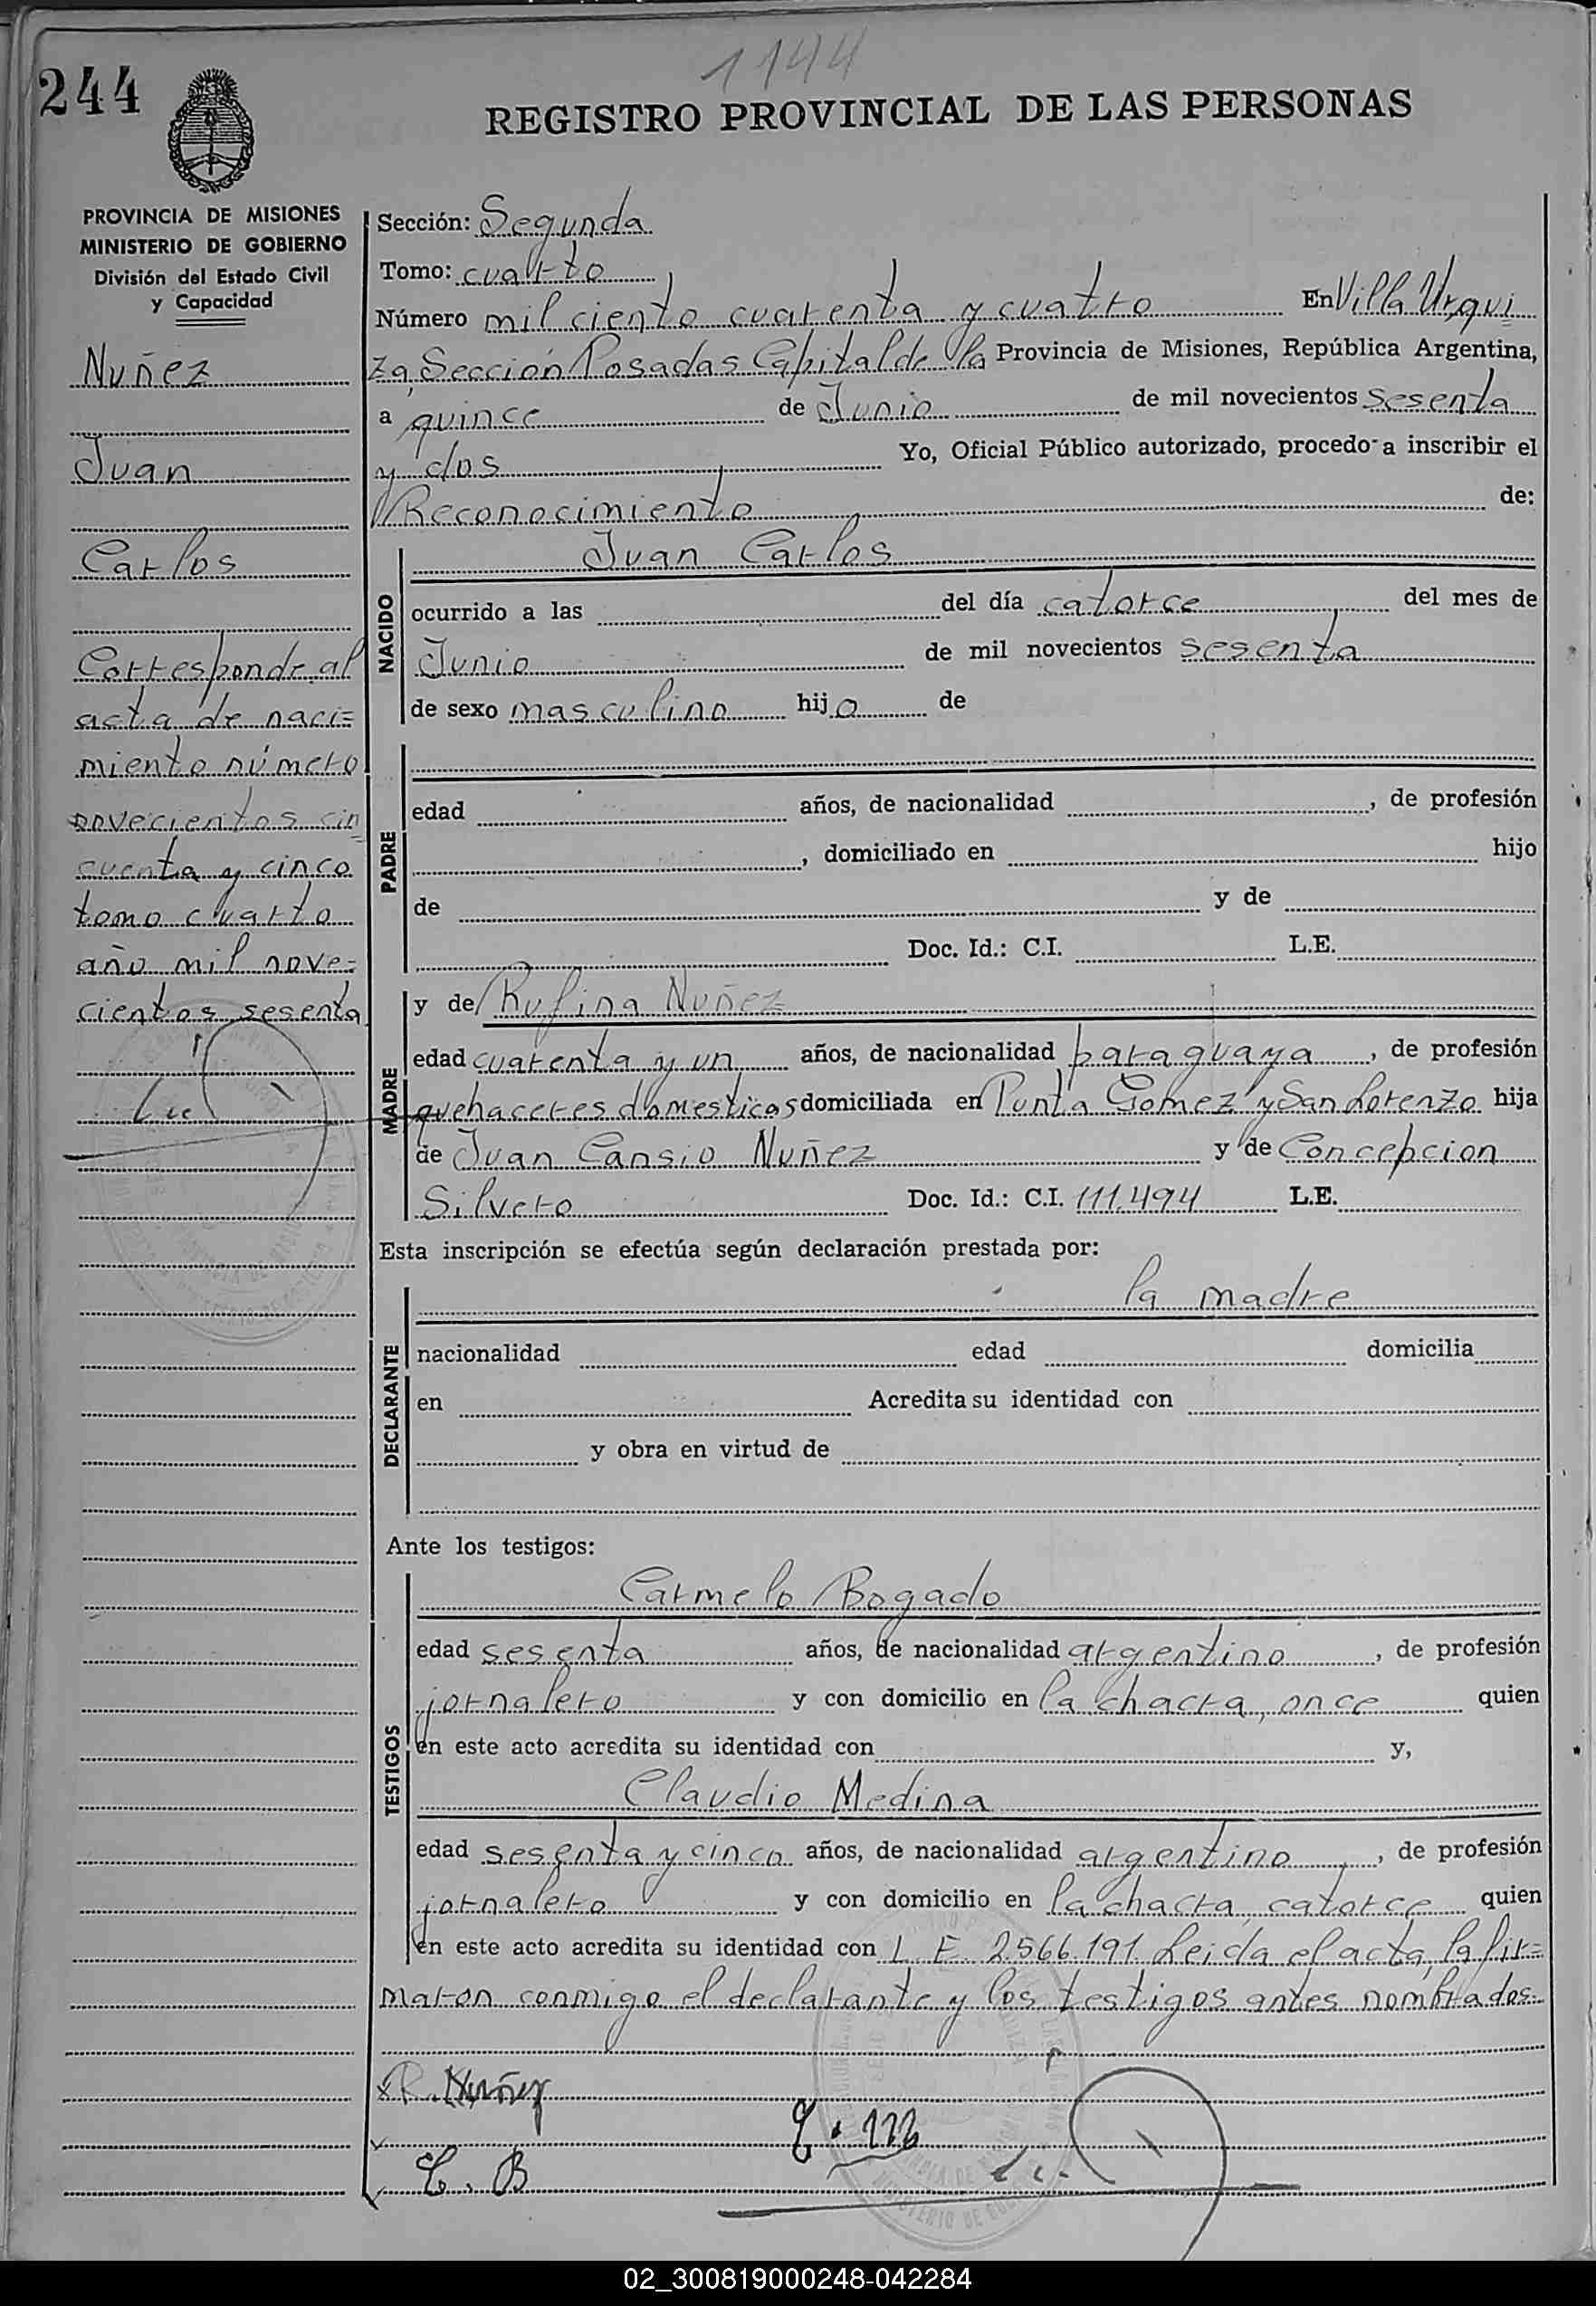 244
1144
REGISTRO PROVINCIAL DE LAS PERSONAS
PROVINCIA DE MISIONES
MINISTERIO DE GOBIERNO
División del Estado Civil
y Capacidad
Nuñez
Juan
Carlos
Corresponde al
acta de naci=
miento número
novecientos cin
cuenta y cinco
tomo cuarto
año mil nove=
cientos sesenta
Sección: Segunda
Tomo: cuarto
Número mil ciento cuarenta y cuatro En Villa Urqui
za, Sección Posadas Capital de la Provincia de Misiones, República Argentina,
a quince de Junio de mil novecientos sesenta
y dos Yo, Oficial Público autorizado, procedo a inscribir el
Reconocimiento de:
NACIDO
Juan Carlos
ocurrido a las del día catorce del mes de
Junio de mil novecientos sesenta
de sexo masculino hijo de
PADRE
edad años, de nacionalidad , de profesión
, domiciliado en hijo
de y de
Doc. Id.: C.I. L.E.
MADRE
y de Rufina Nuñez
edad cuarenta y un años, de nacionalidad paraguaya, de profesión
quehaceres domesticos domiciliada en Punta Gomez y San Lorenzo hija
de Juan Cansio Nuñez y de Concepcion
Silvero Doc. Id.: C.I. 111.494 L.E.
Esta inscripción se efectúa según declaración prestada por:
DECLARANTE
la madre
nacionalidad edad domicilia
en Acredita su identidad con
y obra en virtud de
Ante los testigos:
TESTIGOS
Carmelo Bogado
edad sesenta años, de nacionalidad argentino, de profesión
jornalero y con domicilio en la chacra, once quien
en este acto acredita su identidad con y,
Claudio Medina
edad sesenta y cinco años, de nacionalidad argentino, de profesión
jornalero y con domicilio en la chacra, catorce quien
en este acto acredita su identidad con L. E. 2.566.191. Leida el acta, la fir=
maron conmigo el declarante y los testigos antes nombrados.
R. Nuñez
C. B
02_300819000248-042284